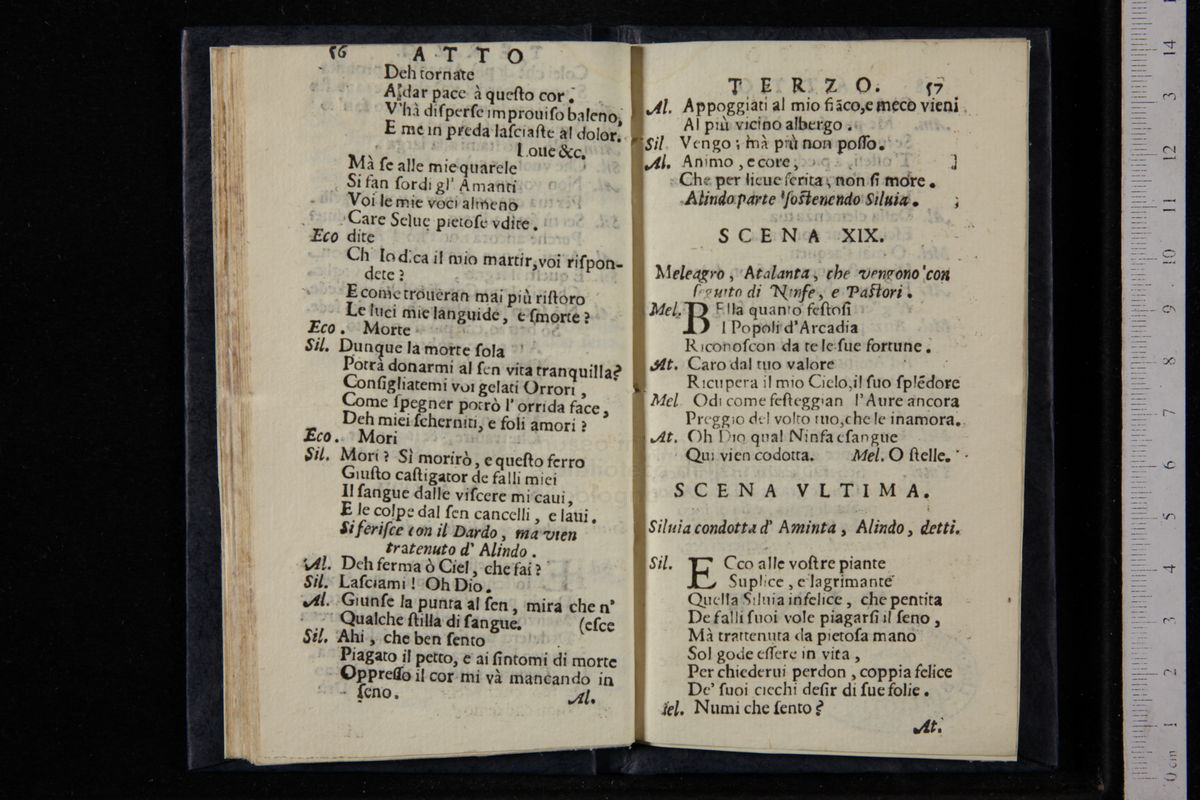 56 ATTO
Deh tornate
A dar pace à questo cor.
V'hà disperse improuiso baleno,
E me in preda lasciaste al dolor.
Loue &c.
Mà se alle mie quarele
Si fan sordi gl' Amanti
Voi le mie voci almeno
Care Selue pietose vdite.
Eco dite
Ch' Io dica il mio martir, voi rispon-
dete?
E come troueran mai più ristoro
Le luci mie languide, e smorte?
Eco. Morte
Sil. Dunque la morte sola
Potrà donarmi al sen vita tranquilla?
Consigliatemi voi gelati Orrori,
Come spegner potrò l'orrida face,
Deh miei scherniti, e soli amori?
Eco. Mori
Sil. Mori? Sì morirò, e questo ferro
Giusto castigator de falli miei
Il sangue dalle viscere mi caui,
E le colpe dal sen cancelli, e laui.
Si ferisce con il Dardo, ma vien
tratenuto d' Alindo.
Al. Deh ferma ò Ciel, che fai?
Sil. Lasciami! Oh Dio.
Al. Giunse la punta al sen, mira che n'
Qualche stilla di sangue. (esce
Sil. Ahi, che ben sento
Piagato il petto, e ai sintomi di morte
Oppresso il cor mi và mancando in
seno. Al.
TERZO. 57
Al. Appoggiati al mio fiãco, e meco vieni
Al più vicino albergo.
Sil Vengo; mà più non posso.
Al. Animo, e core,
Che per lieue ferita, non si more.
Alindo parte sostenendo Siluia.
SCENA XIX.
Meleagro, Atalanta, che vengono con
seguito di Ninfe, e Pastori.
Mel. BElla quanto festosi
I Popoli d'Arcadia
Riconoscon da te le sue fortune.
At. Caro dal tuo valore
Ricupera il mio Cielo, il suo splẽdore
Mel Odi come festeggian l'Aure ancora
Preggio del volto tuo, che le inamora.
At. Oh Dio qual Ninfa esangue
Qui vien codotta. Mel. O stelle.
SCENA VLTIMA.
Siluia condotta d' Aminta, Alindo, detti.
Sil. ECco alle vostre piante
Suplice, e lagrimante
Quella Siluia infelice, che pentita
De falli suoi vole piagarsi il seno,
Mà trattenuta da pietosa mano
Sol gode essere in vita,
Per chiederui perdon, coppia felice
De' suoi ciechi desir di sue folie.
Mel. Numi che sento?
At.